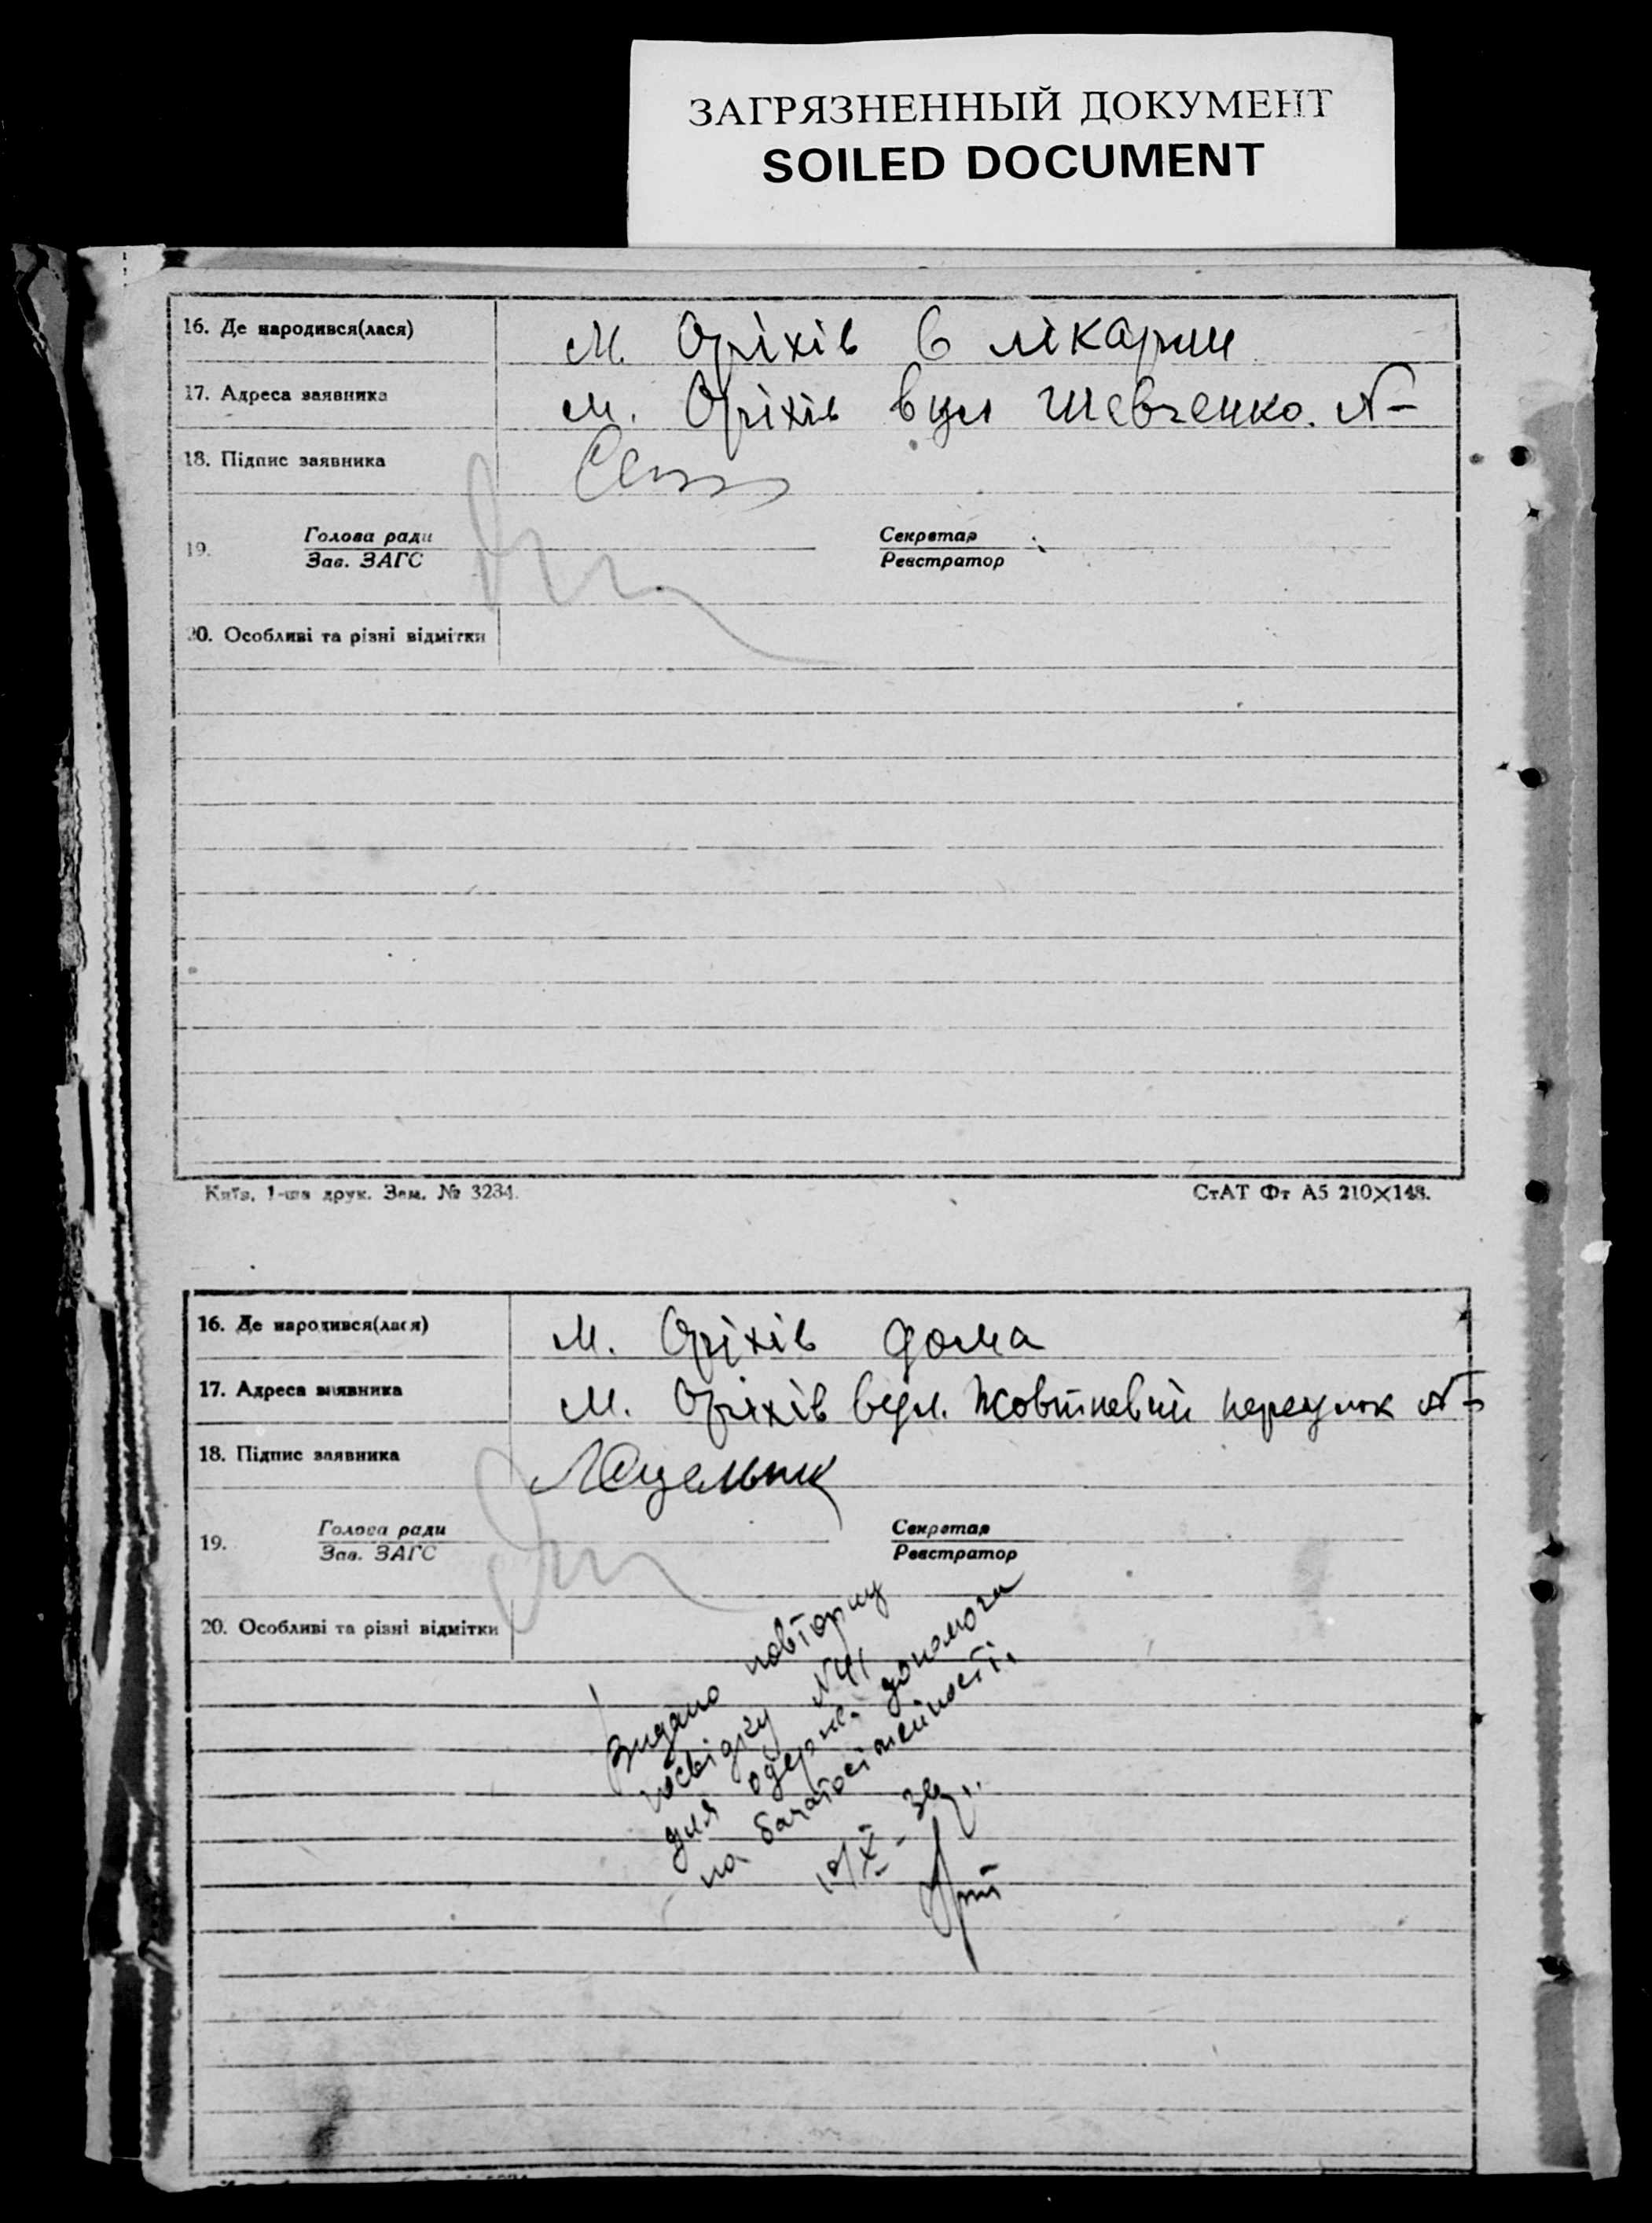 ЗАГРЯЗНЕННЫЙ ДОКУМЕНТ
SOILED DOCUMENT
16. Де народився(лася) м. Оріхів в лікарни
17. Адреса заявника м. Оріхів вул Шевченко. №-
18. Підпис заявника
19. Голова ради Секретар
Зав. ЗАГС Реєстратор
20. Особливі та різні відмітки
Київ, 1-ша друк. Зам. № 3234.
СтАТ Фт А5 210×148.
16. Де народився(лася) м. Оріхів дома
17. Адреса заявника м. Оріхів вул. Жовтневий переулок №-
18. Підпис заявника
19. Голова ради Секретар
Зав. ЗАГС Реєстратор
20. Особливі та різні відмітки
Видано повторну
посвідку №41
для одержан. допомоги
на багатосімейность